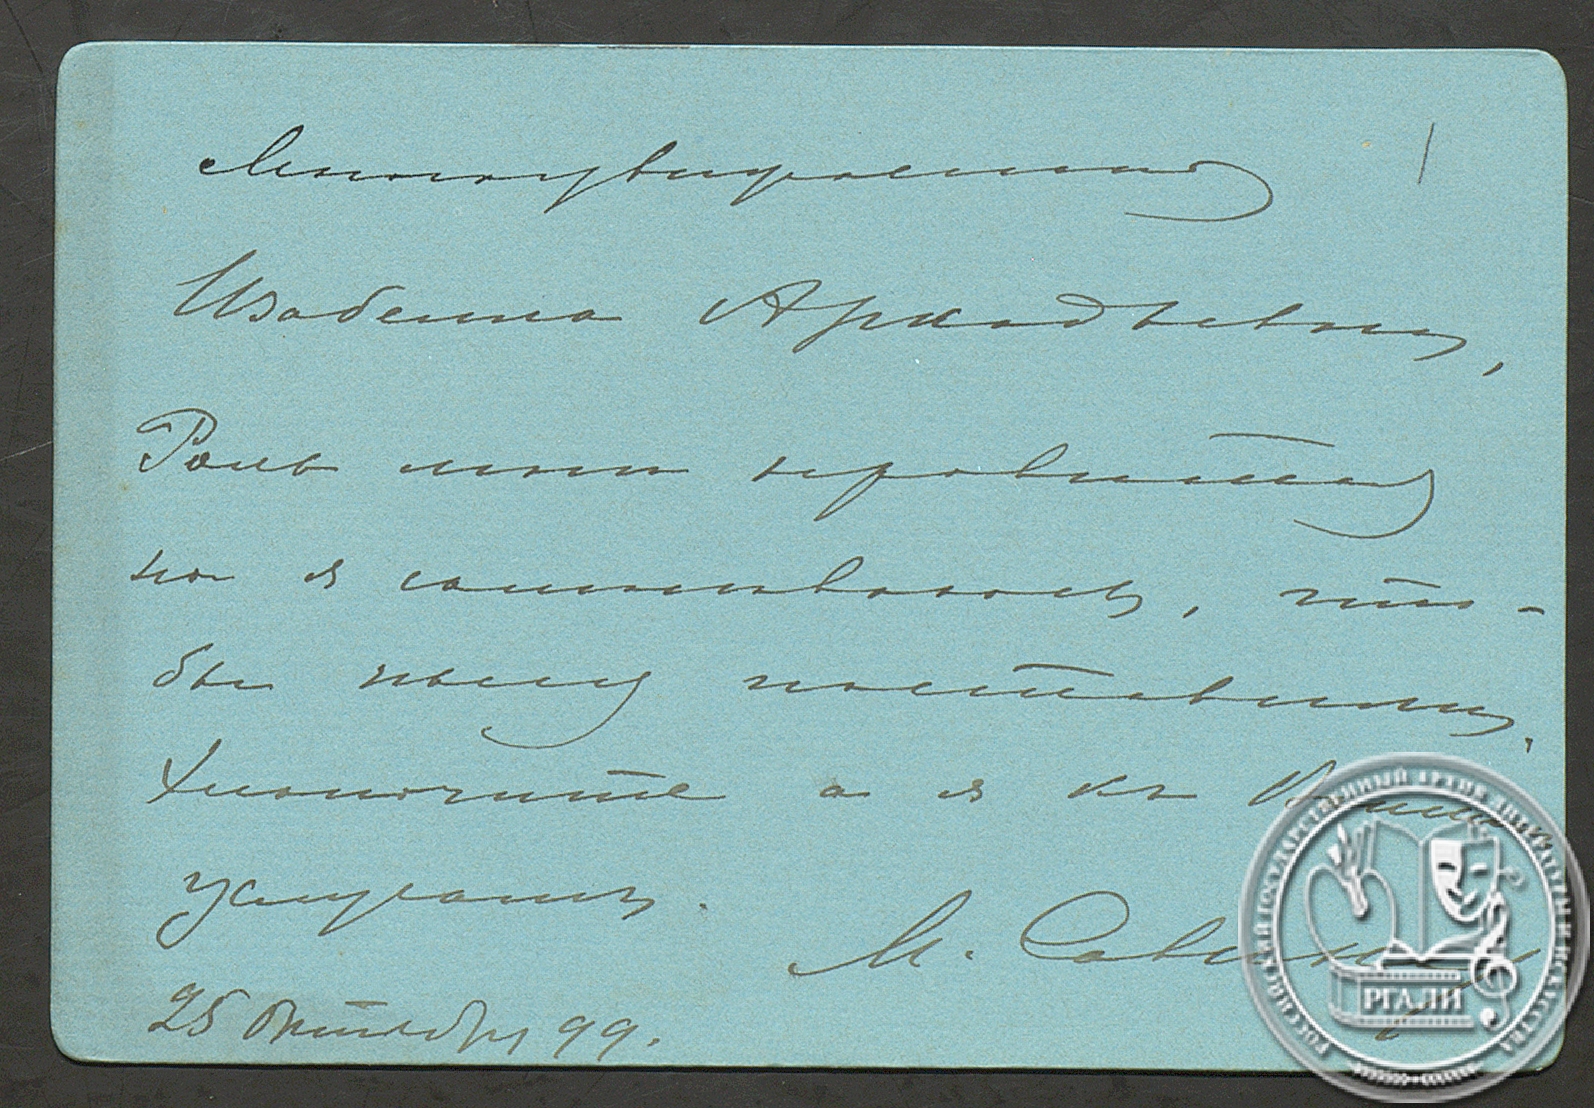 Многоуважаемая
Изабелла Аркадьевна,
Роль мне нравится
но я сомневаюсь, что-
бы пьесу поставили.
Хлопочите а я къ Вашимъ
услугамъ.
М. Савина
25 Октября 99.
РОССИЙСКИЙ ГОСУДАРСТВЕННЫЙ АРХИВ ЛИТЕРАТУРЫ И ИСКУССТВА
РГАЛИ